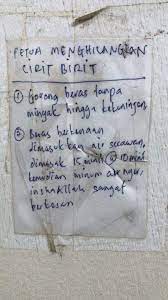 PETUA MENGHILANGKAN
CIRIT BIRIT
① Goreng beras tanpa
minyak hingga kekuningan
② Beras berkenaan
dimasukkan air secawan,
dimasak 15 minit
kemudian minum airnya,
inshaAllah sangat
berkesan